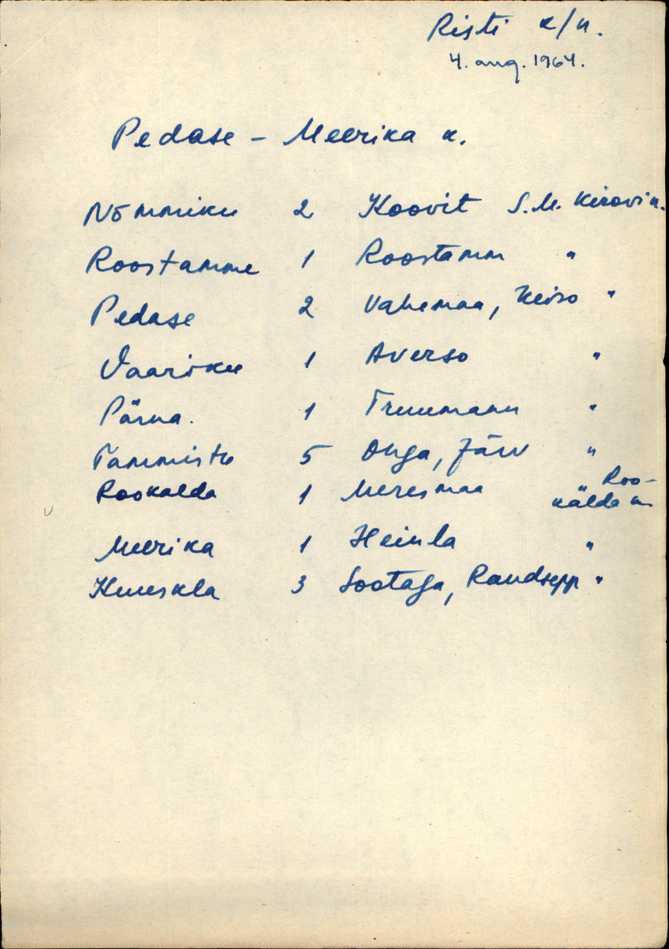 Risti k/n.
4. aug. 1964.
Pedase - Meerika k.
Nõmmiku 2 Koovit S.M. Kirovi n.
Roostamme 1 Roostamm "
Pedase 2 Vahemaa, "
Vaariku 1 Averso "
Pärna. 1 Truumann "
Tammistu 5 Ohga, Järv "
Rookalda 1 Meresmaa " Roo-
kälda
Meerika 1 Heinla "
Kuuskla 3 Sootaga, Raudsepp "